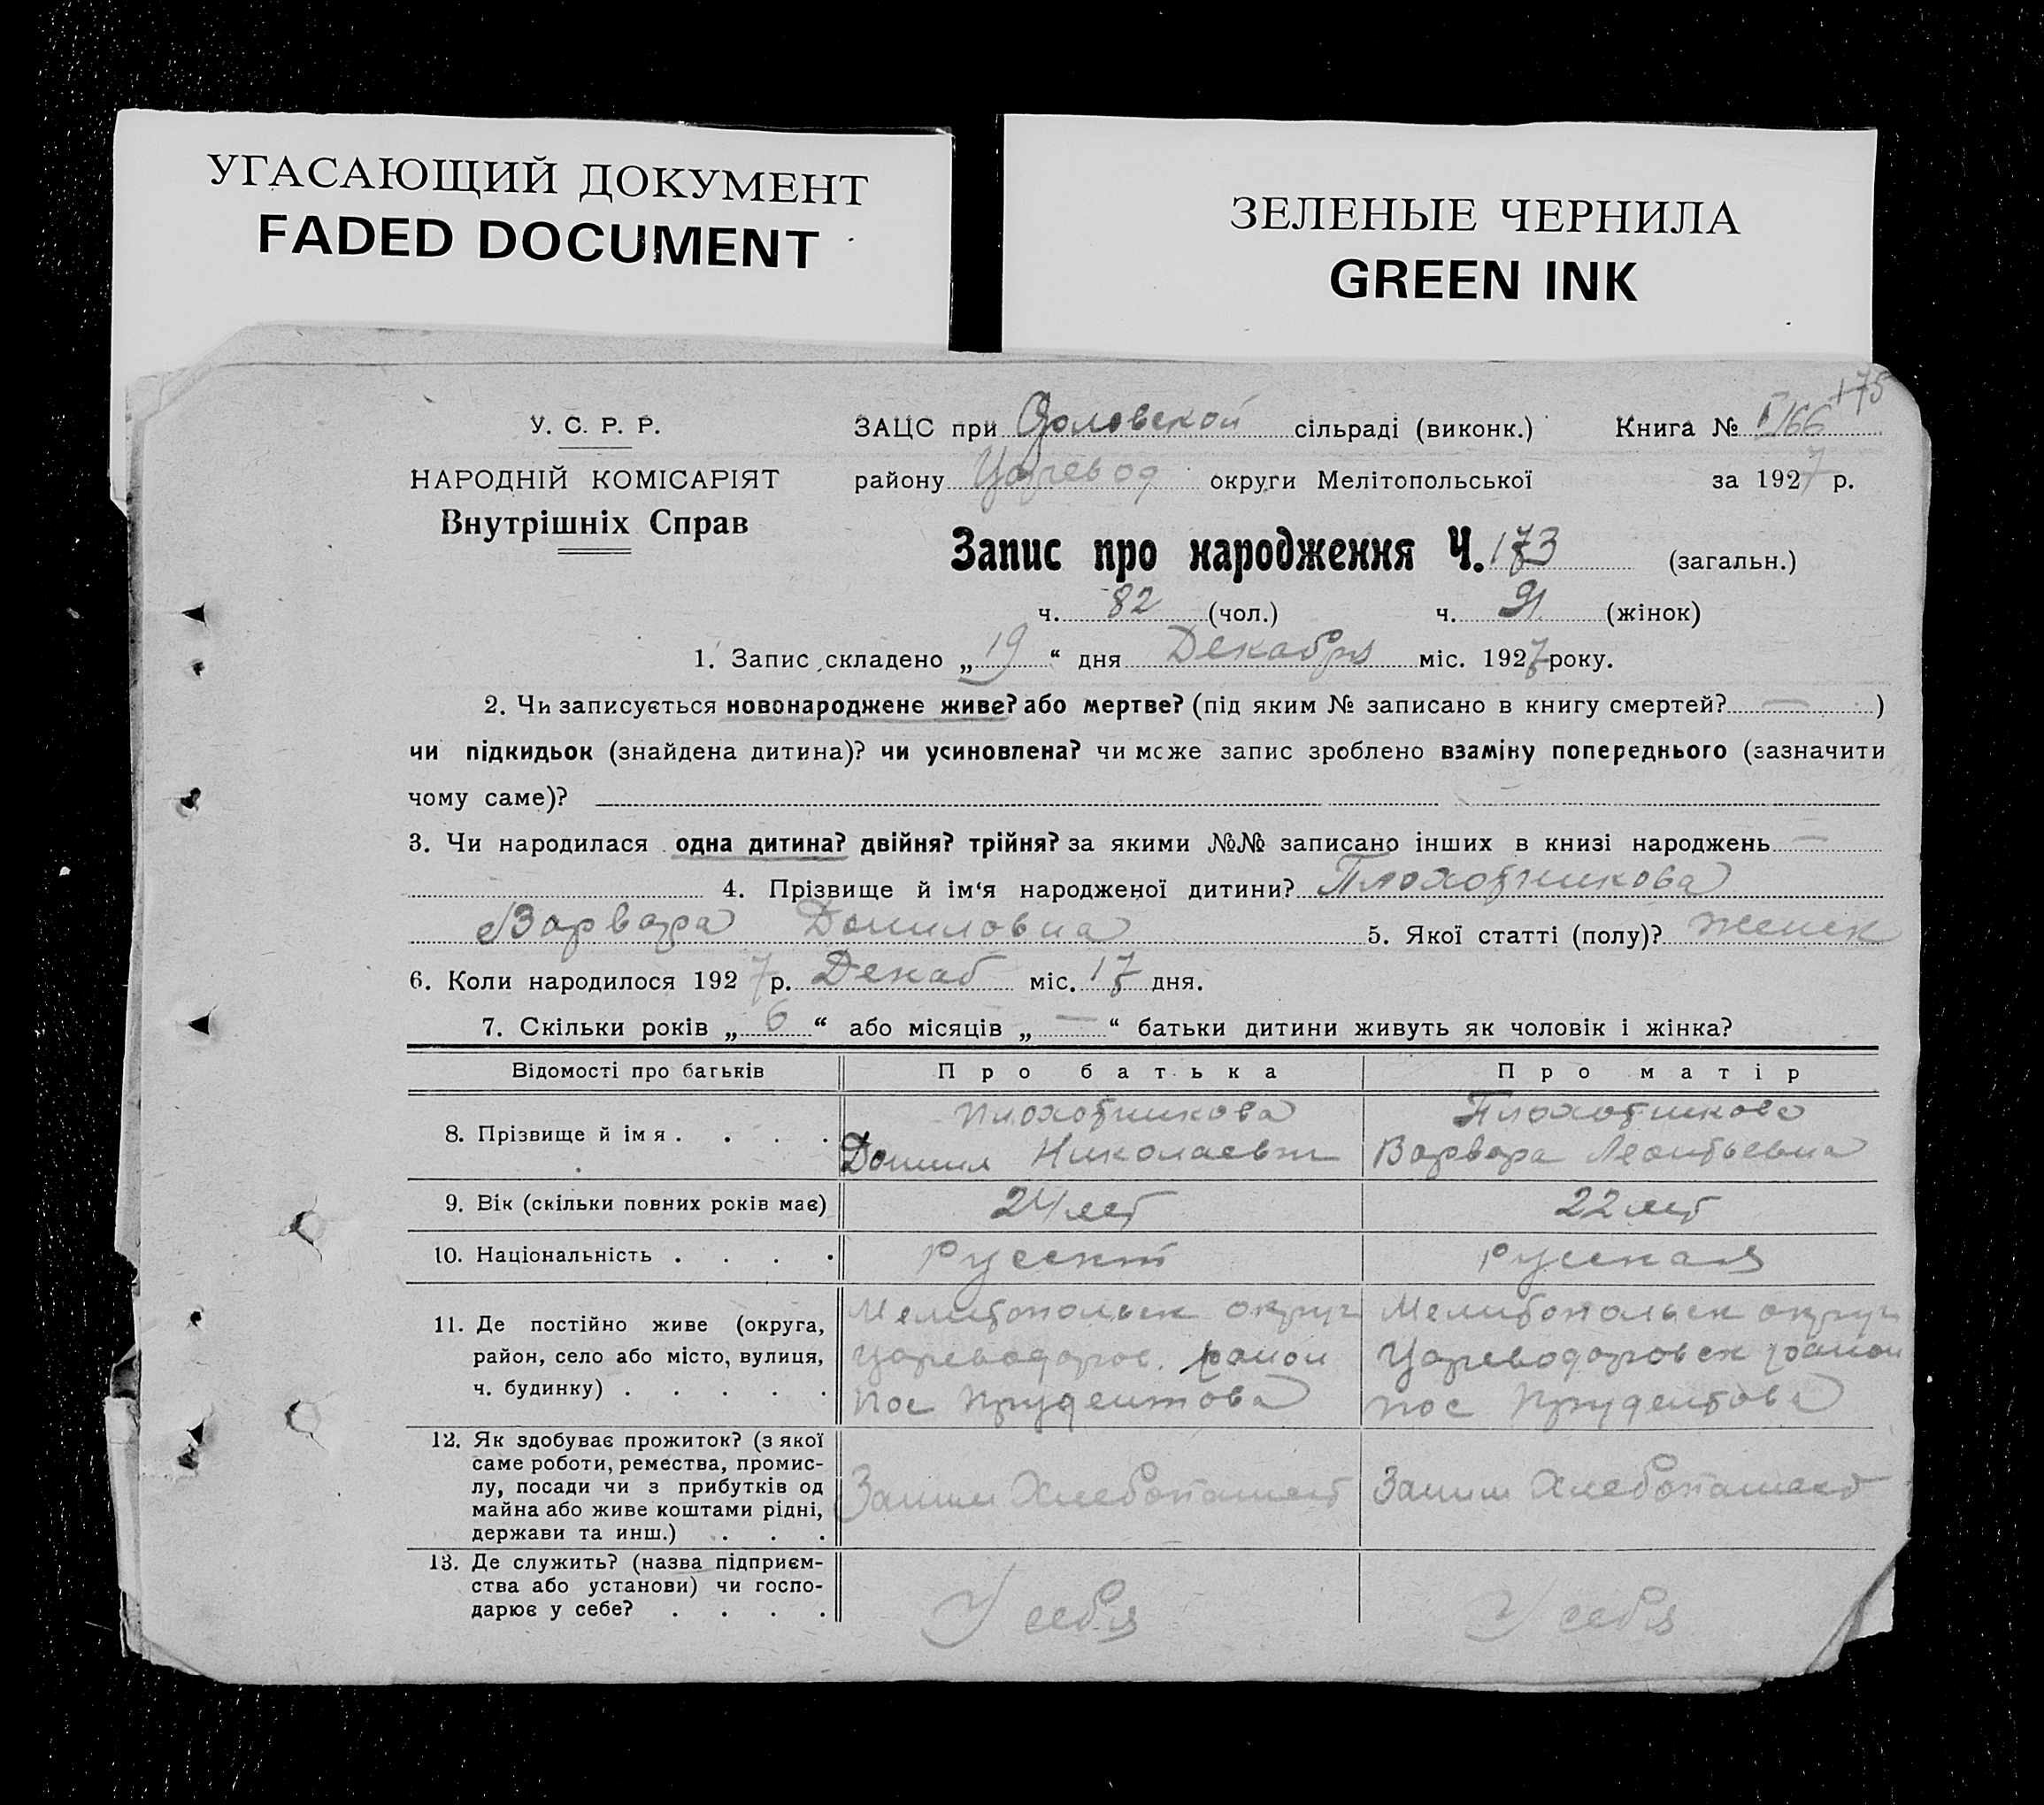 УГАСАЮЩИЙ ДОКУМЕНТ
FADED DOCUMENT
ЗЕЛЕНЫЕ ЧЕРНИЛА
GREEN INK
175
У. С. Р. Р.
НАРОДНІЙ КОМІСАРІЯТ
Внутрішніх Справ
ЗАЦС при сільраді (виконк.) Книга № 166
району Царевод округи Мелітопольської за 1927 р.
Запис про народження Ч. 173 (загальн.)
ч. 82 (чол.) ч. 91 (жінок)
1. Запис складено „19“ дня Декабря міс. 1927 року.
2. Чи записується новонароджене живе? або мертве? (під яким № записано в книгу смертей? — )
чи підкидьок (знайдена дитина)? чи усиновлена? чи може запис зроблено взаміну попереднього (зазначити
чому саме)?
3. Чи народилася одна дитина? двійня? трійня? за якими №№ записано інших в книзі народжень —
4. Прізвище й ім‘я народженої дитини? Плохотникова
Варвара Даниловна 5. Якої статті (полу)? женск
6. Коли народилося 1927 р. Декаб міс. 17 дня.
7. Скільки років „6“ або місяців „—“ батьки дитини живуть як чоловік і жінка?
Відомості про батьків Про батька Про матір
8. Прізвище й імя . . . . Плохотникова Плохотникова
Данил Николаевич Варвара Леонтьевна
9. Вік (скільки повних років має) 24 лет 22 лет
10. Національність . . . . Руский Руская
11. Де постійно живе (округа, Мелитопольск округ Мелитопольск округ
район, село або місто, вулиця, Цареводаров. район Цареводаровск район
ч. будинку) . . . . . пос Прудентова пос Прудентова
12. Як здобуває прожиток? (з якої
саме роботи, ремества, промис-
лу, посади чи з прибутків од
майна або живе коштами рідні,
держави та инш.) . . .
Заним Хлебопашест Заним Хлебопашест
13. Де служить? (назва підприєм-
ства або установи) чи госпо-
дарює у себе? . . . .
У себя У себя